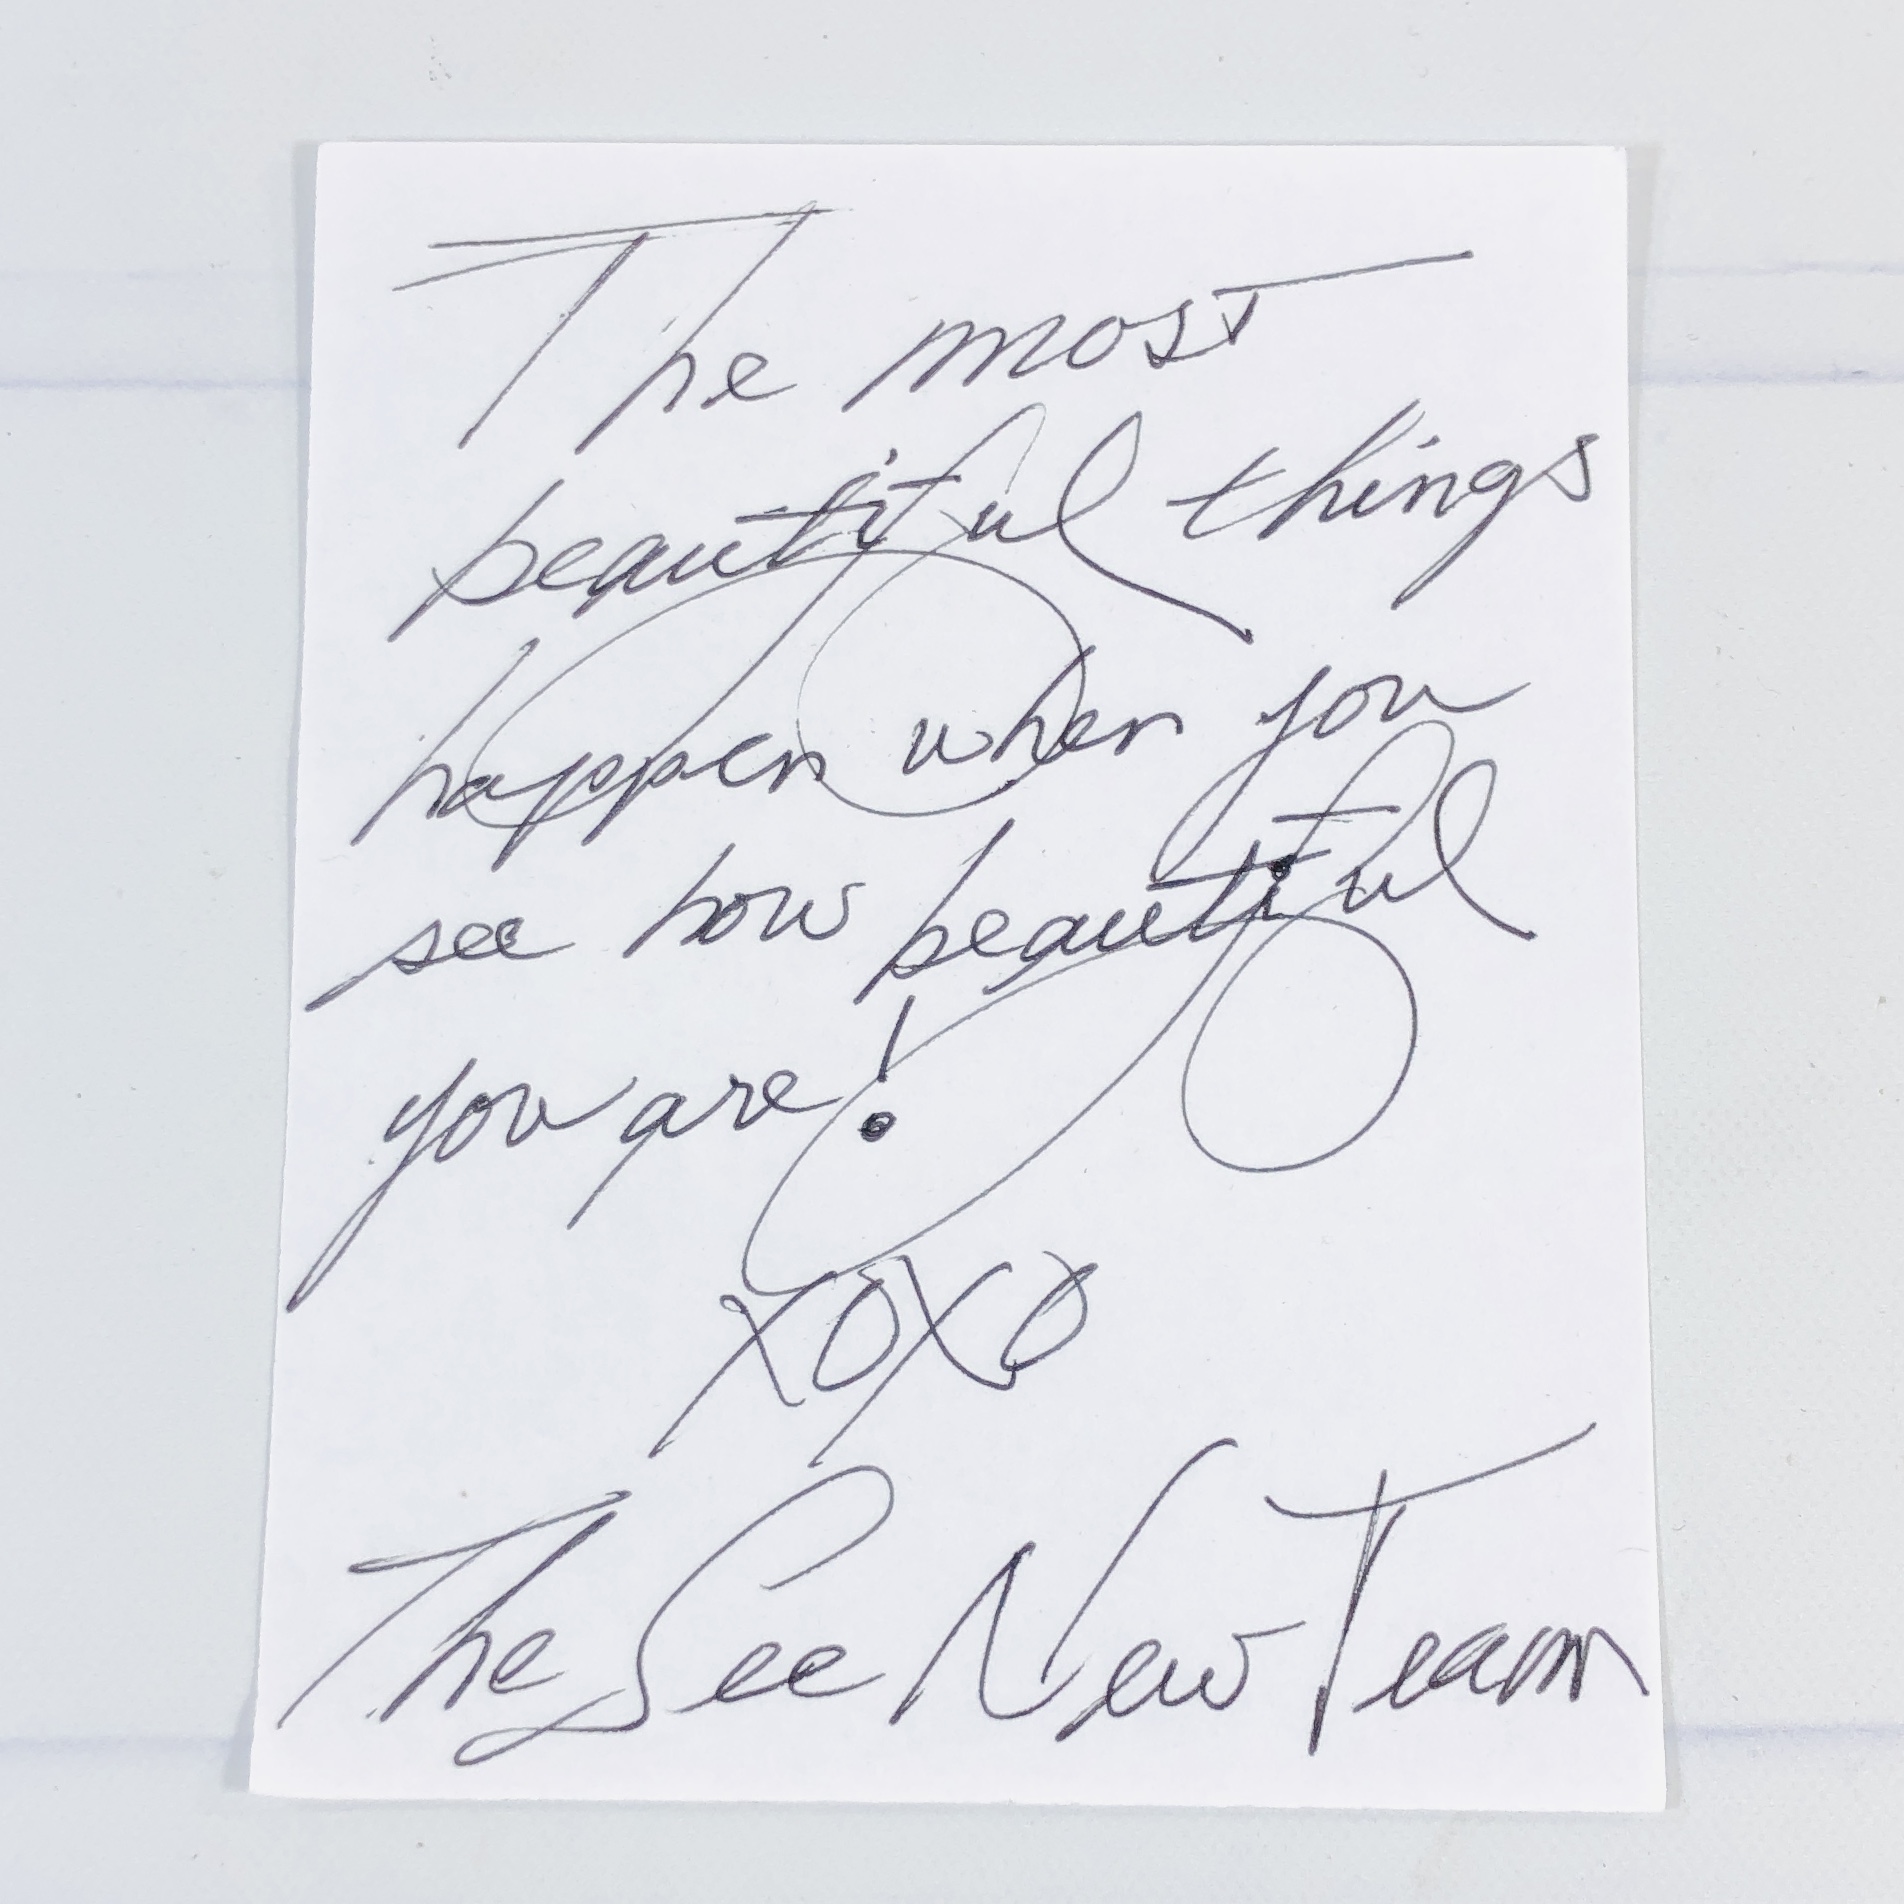 The most
beautiful things
happen when you
see how beautiful
you are!
XOXO
The See New Team